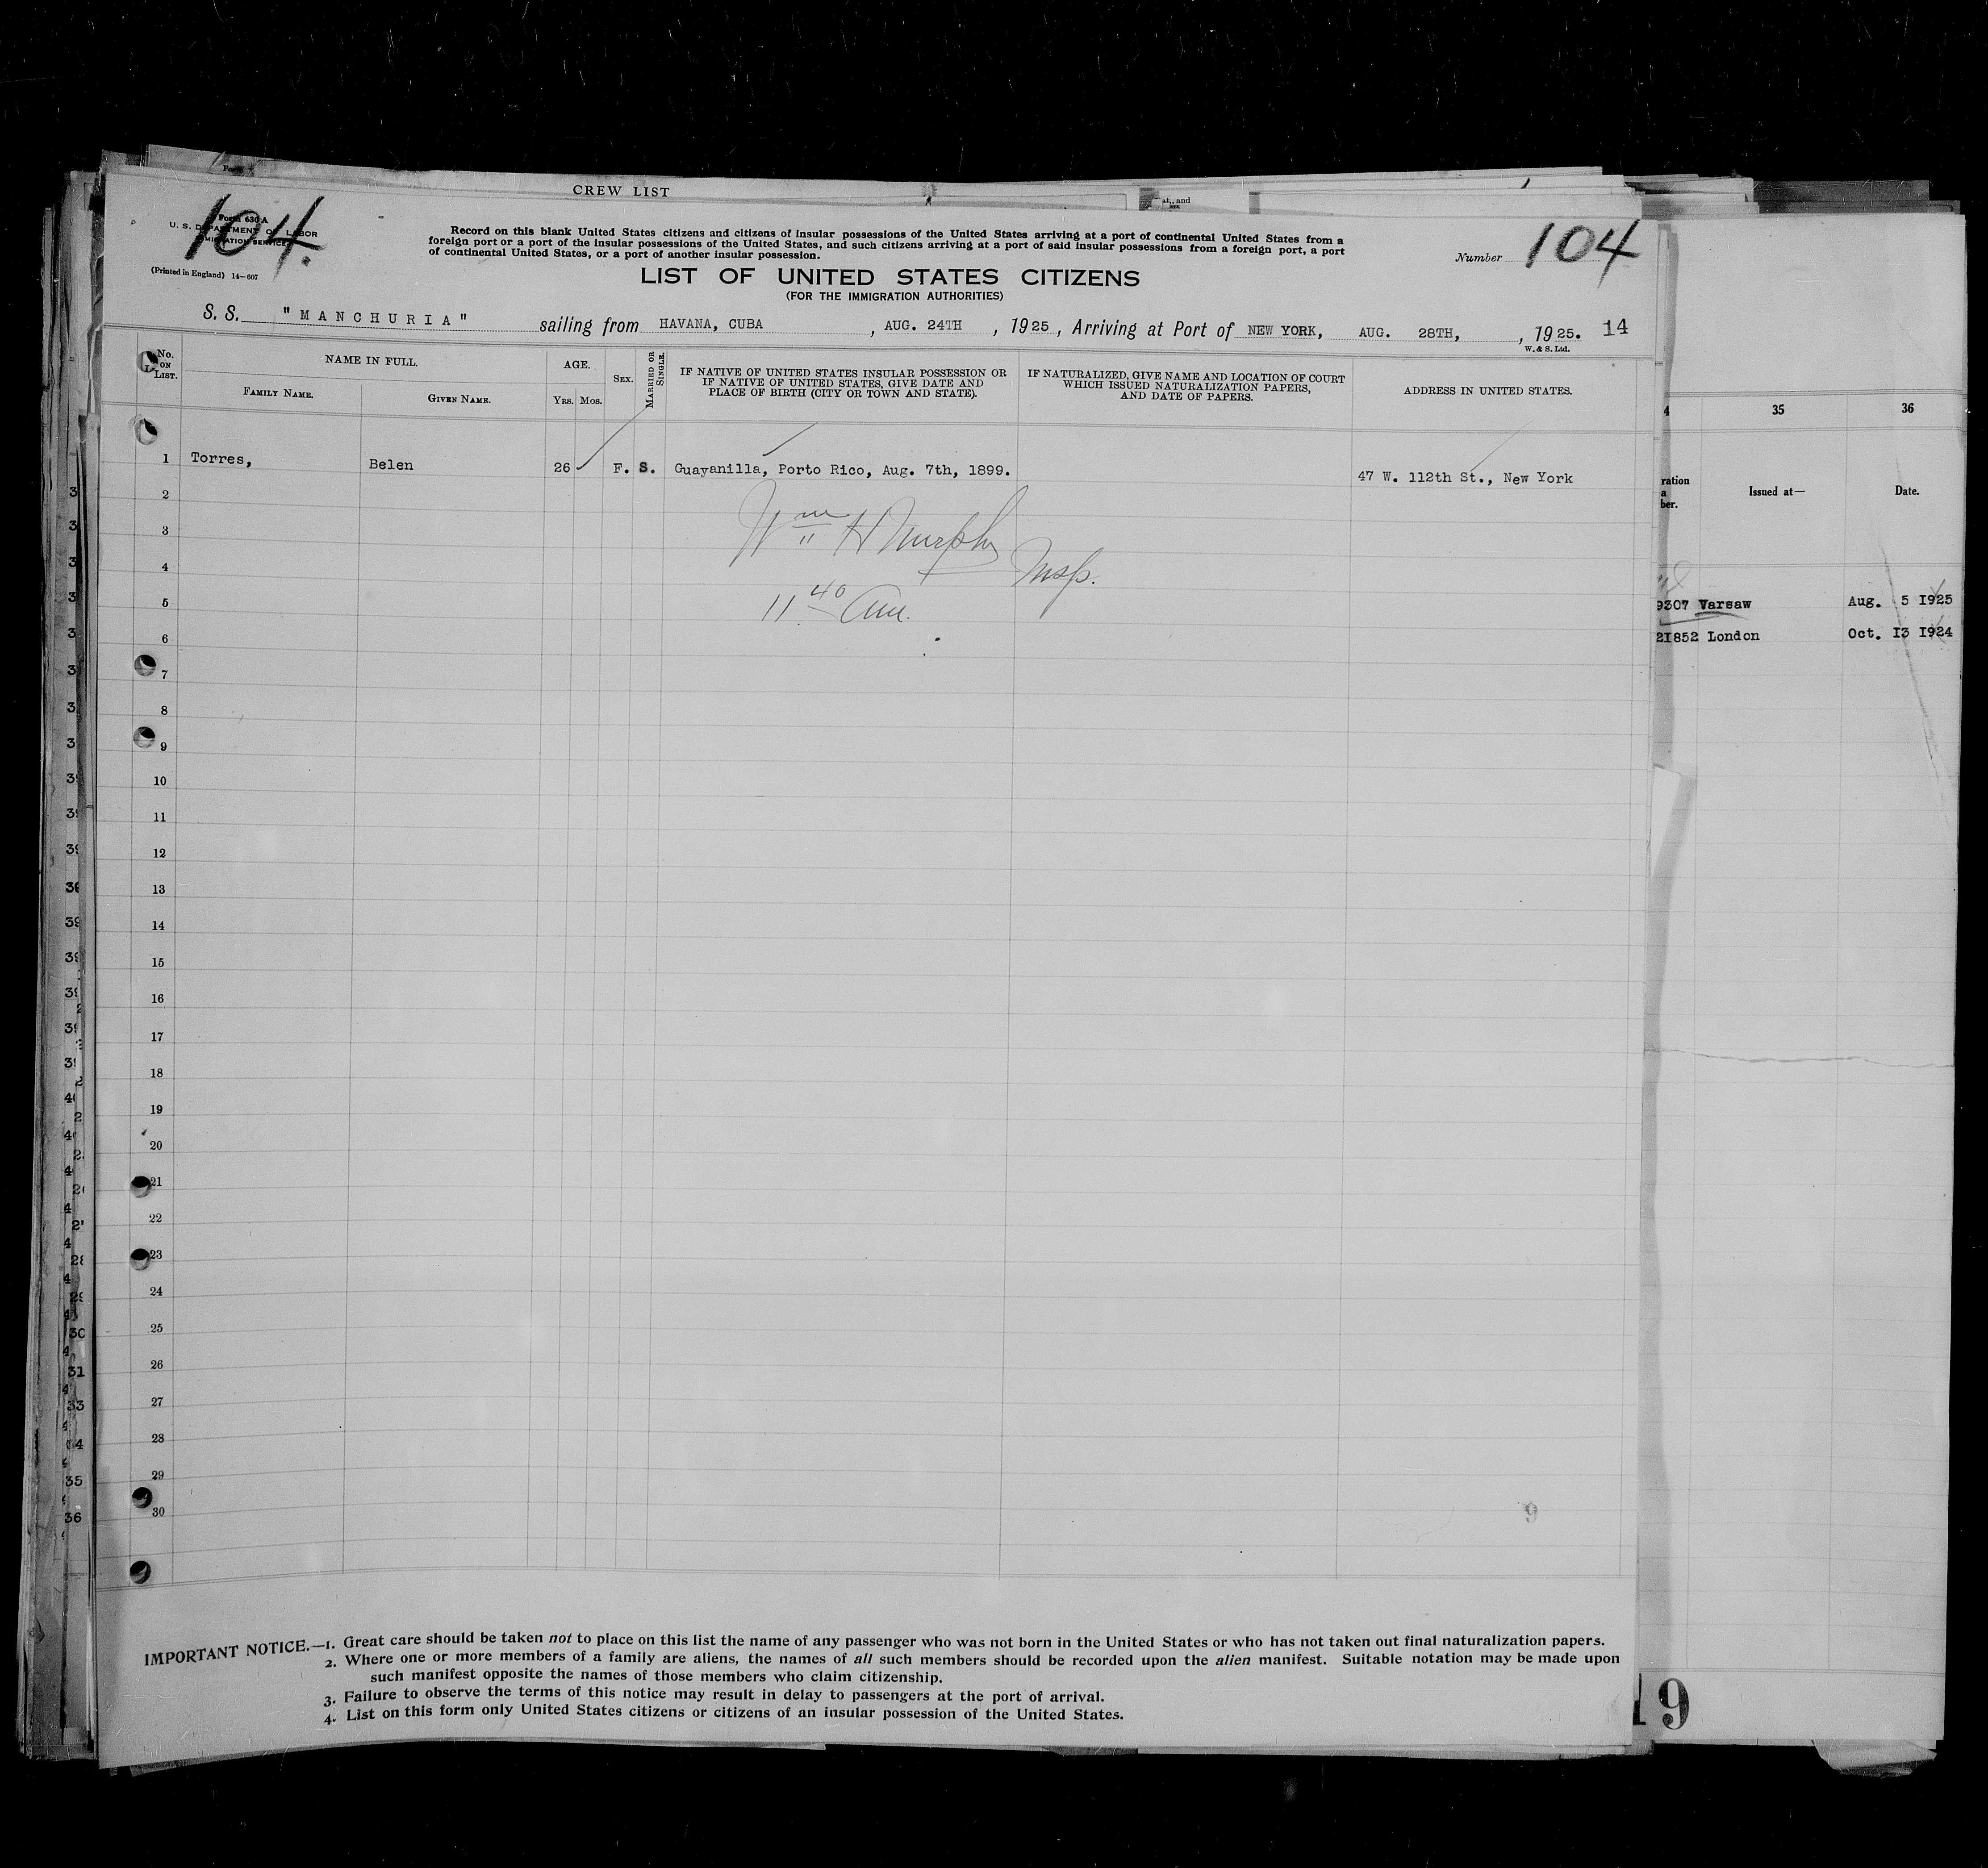 CREW LIST
at, and
104.
Form 630 A
U. S. DEPARTMENT OF LABOR
IMMIGRATION SERVICE
(Printed in England) 14—607
Record on this blank United States citizens and citizens of insular possessions of the United States arriving at a port of continental United States from a
foreign port or a port of the insular possessions of the United States, and such citizens arriving at a port of said insular possessions from a foreign port, a port
of continental United States, or a port of another insular possession.
Number 104
LIST OF UNITED STATES CITIZENS
(FOR THE IMMIGRATION AUTHORITIES)
S. S. "MANCHURIA" sailing from HAVANA, CUBA, AUG. 24TH, 1925, Arriving at Port of NEW YORK, AUG. 28TH, , 1925. 14
W. & S. Ltd.
No. ON LIST.
NAME IN FULL.
FAMILY NAME.
GIVEN NAME.
AGE.
YRS.
MOS.
SEX.
MARRIED OR SINGLE.
IF NATIVE OF UNITED STATES INSULAR POSSESSION OR
IF NATIVE OF UNITED STATES, GIVE DATE AND
PLACE OF BIRTH (CITY OR TOWN AND STATE).
IF NATURALIZED, GIVE NAME AND LOCATION OF COURT
WHICH ISSUED NATURALIZATION PAPERS,
AND DATE OF PAPERS.
ADDRESS IN UNITED STATES.
1 Torres, Belen 26 F. S. Guayanilla, Porto Rico, Aug. 7th, 1899. 47 W. 112th St., New York
2
Wm H Murphy
3
Insp.
4
11 40 am.
5
6
7
8
9
10
11
12
13
14
15
16
17
18
19
20
21
22
23
24
25
26
27
28
29
30
9
IMPORTANT NOTICE.—1. Great care should be taken not to place on this list the name of any passenger who was not born in the United States or who has not taken out final naturalization papers.
2. Where one or more members of a family are aliens, the names of all such members should be recorded upon the alien manifest. Suitable notation may be made upon
such manifest opposite the names of those members who claim citizenship.
3. Failure to observe the terms of this notice may result in delay to passengers at the port of arrival.
4. List on this form only United States citizens or citizens of an insular possession of the United States.
4 35 36
ration
a
ber.
Issued at—
Date.
9307 Varsaw Aug. 5 1925
21852 London Oct. 13 1924
19